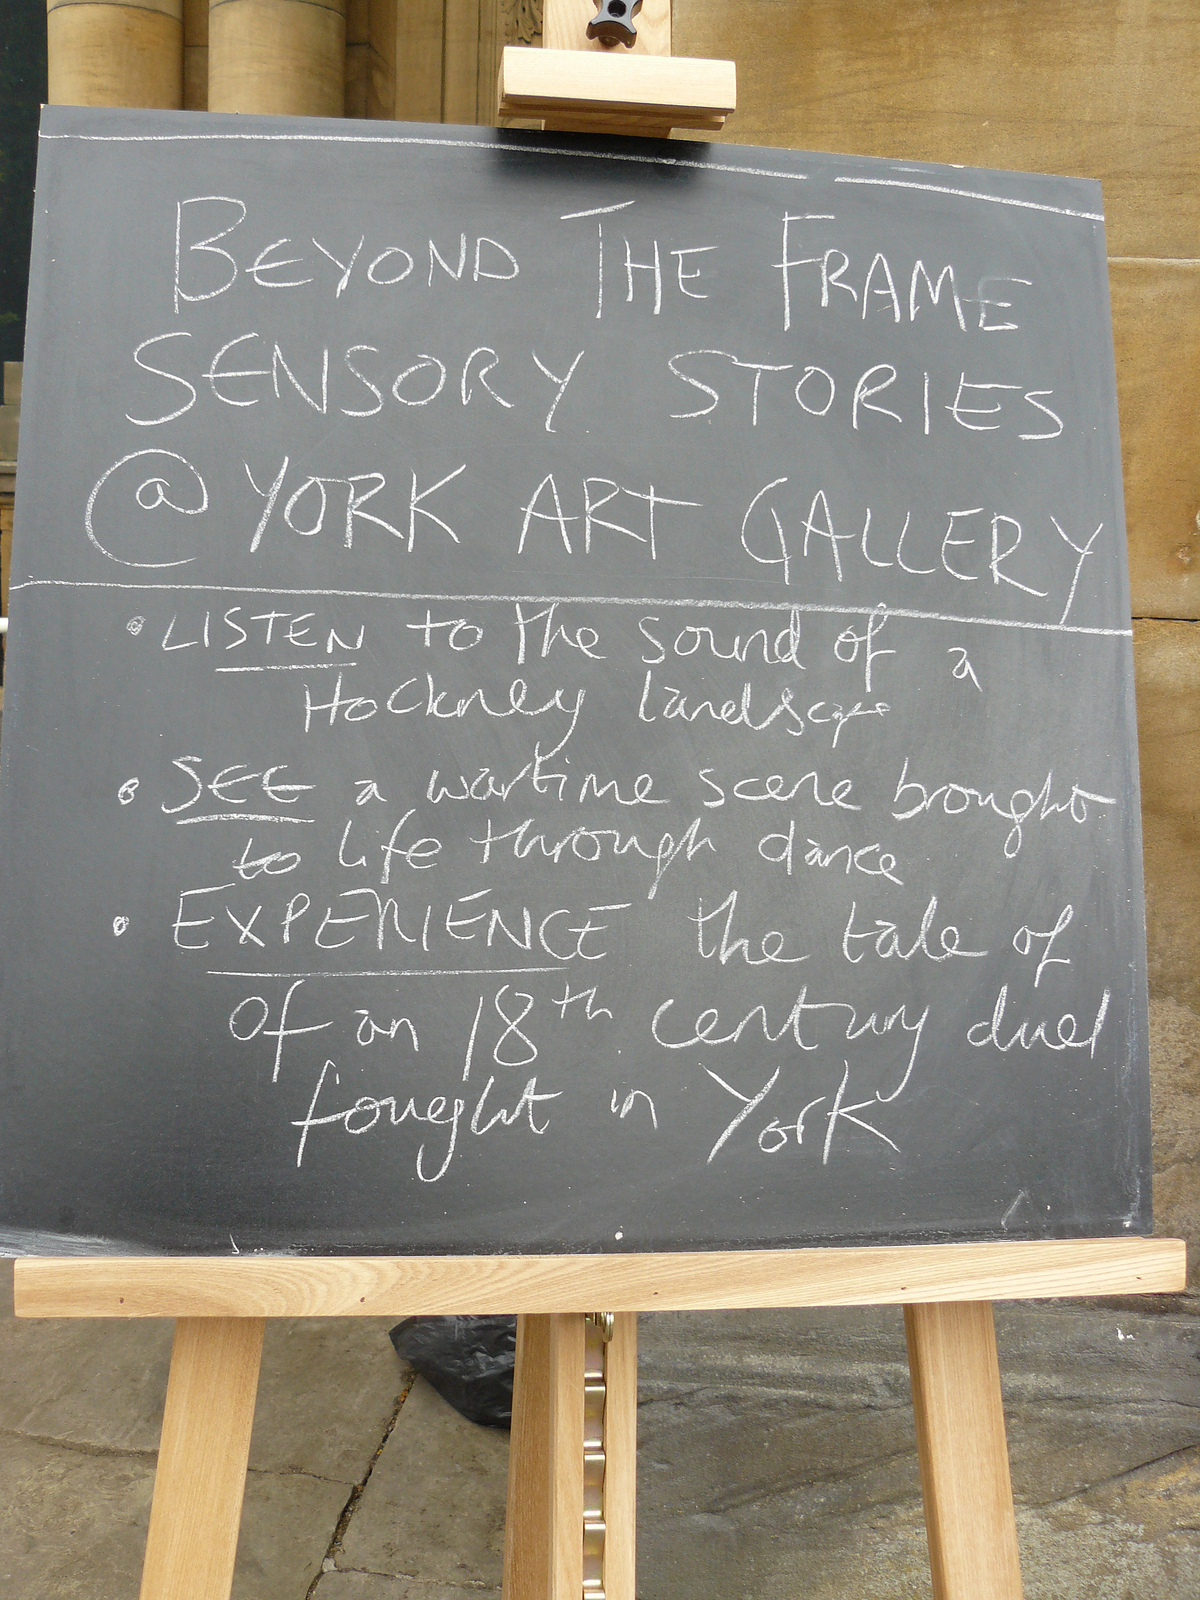 BEYOND THE FRAME
SENSORY STORIES
@ YORK ART GALLERY
• LISTEN to the sound of a
Hockney landscape
• SEE a wartime scene brought
to life through dance
• EXPERIENCE the tale of
of an 18th century duel
fought in York